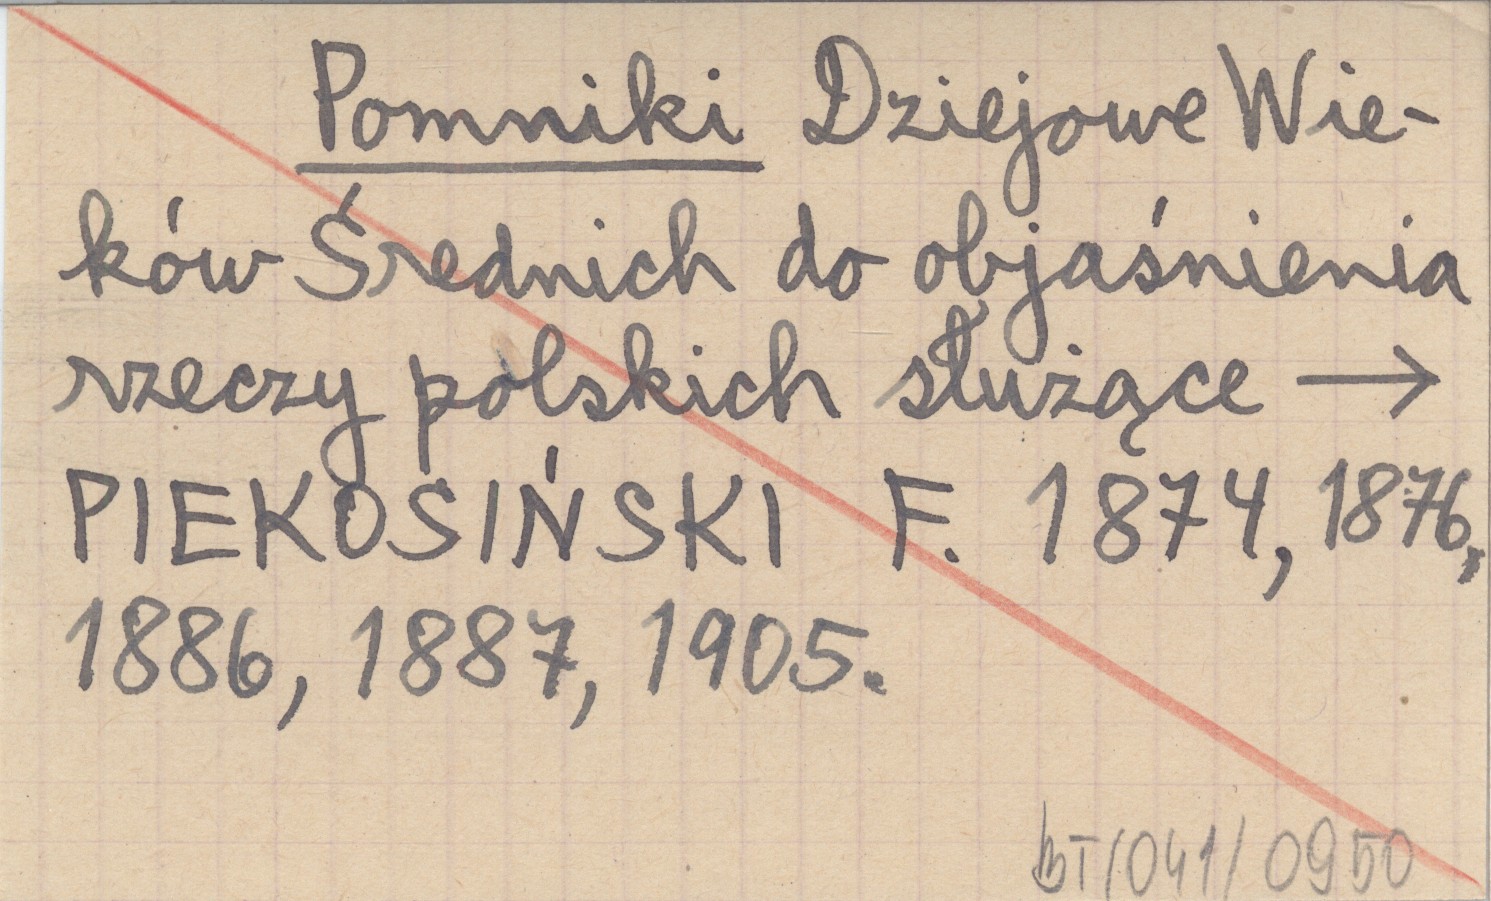 Pomniki Dziejowe Wie-
ków Średnich do objaśnienia
rzeczy polskich służące →
PIEKOSIŃSKI F. 1874, 1876,
1886, 1887, 1905.
bT/041/0950